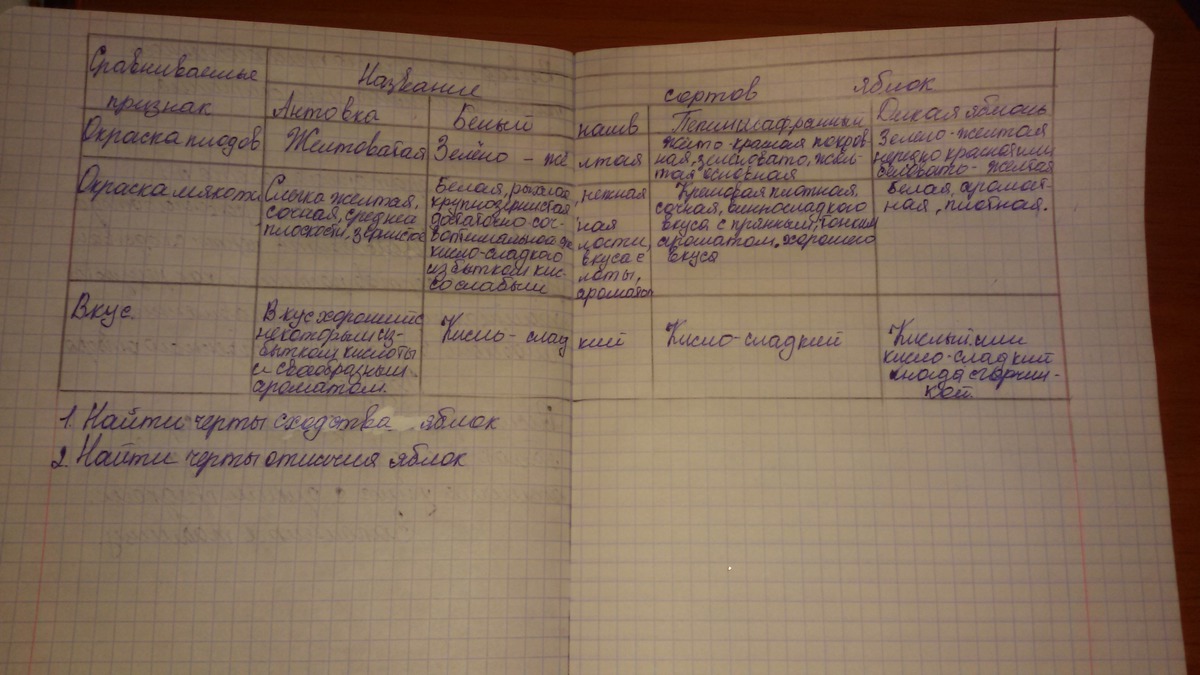 Сравниваемые Название сортов яблок
признак Антовка Белый налив Пепин шафранный Дикая яблонь
Окраска плодов Желтоватая Зелёно - желтая
Желто-красная покров-
ная, зеленовато, жел-
тая основная
Зелено-желтая
нередко красная или
желтая
Окраска мякоти
Слегка желтая,
сочная, средней
плоскости, зернистое
Белая, рыхлая, нежная
крупнозернистая
достаточно соч- ная
кисло-сладкого вкуса с
избытком кис- лоты,
со слабым аромотом
Кремовая плотная,
сочная, винносладкого
вкуса с пряным, тонким
ароматом. хорошего
вкуса
Белая, аромат-
ная, плотная.
Вкус.
Вкус хороший с
некоторым из-
бытком кислоты
и своеобразным
ароматом.
Кисло - слад кий
Кисло-сладкий
Кислый или
кисло-сладкий
иногда с горчин-
кой.
1. Найти черты сходства яблок
2. Найти черты отличия яблок